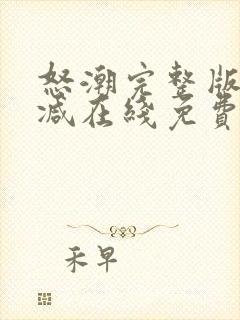 怒潮完整版
减在綫免費
禾早